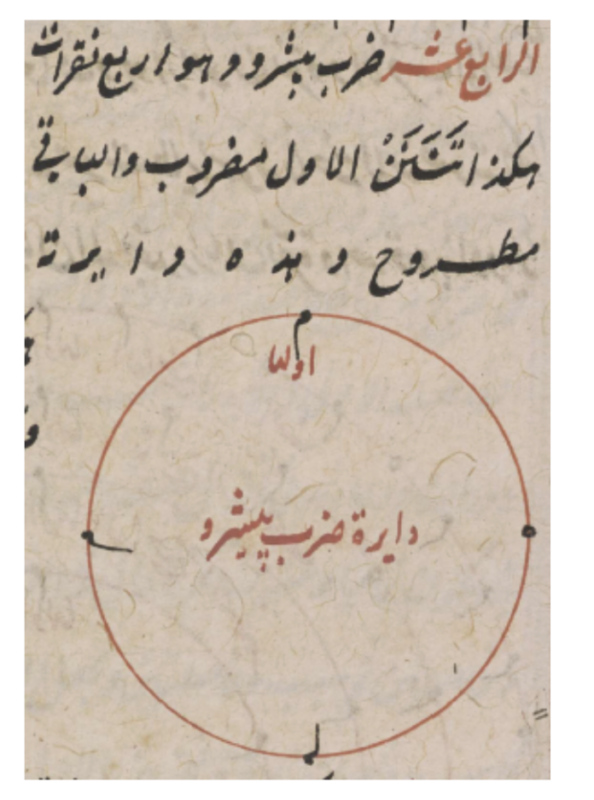 الرابع عشر ضرب پيشرو وهو اربع نقرات
هكذا تَنَنَنْ الاول مضروب والباقي
مطروح وهذه دايرة
اولها
دايرة ضرب پيشرو